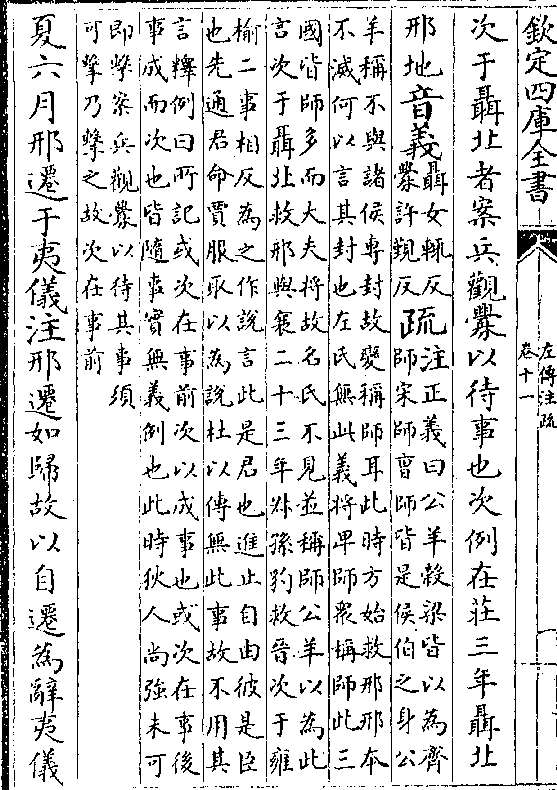 欽定四庫全書
左傳注疏
卷十一
次于聶北者案兵觀釁以待事也次例在莊三年聶北
邢地音義聶女輒反
釁許覲反疏注正義曰公羊穀梁皆以為齊
師宋師曹師皆是侯伯之身公
羊稱不與諸侯專封故變稱師耳此時方始救邢邢本
不滅何以言其封也左氏無此義將卑師衆稱師此三
國皆師多而大夫將故名氏不見並稱師公羊以為此
言次于聶北救邢與襄二十三年叔孫豹救晉次于雍
榆二事相反為之作說言此是君也進止自由彼是臣
也先通君命賈服取以為說杜以傳無此事故不用其
言釋例曰所記或次在事前次以成事也或次在事後
事成而次也皆隨事實無義例也此時狄人尚強未可
即擊案兵觀釁以待其事須
可擊乃擊之故次在事前
夏六月邢遷于夷儀注邢遷如歸故以自遷為辭夷儀